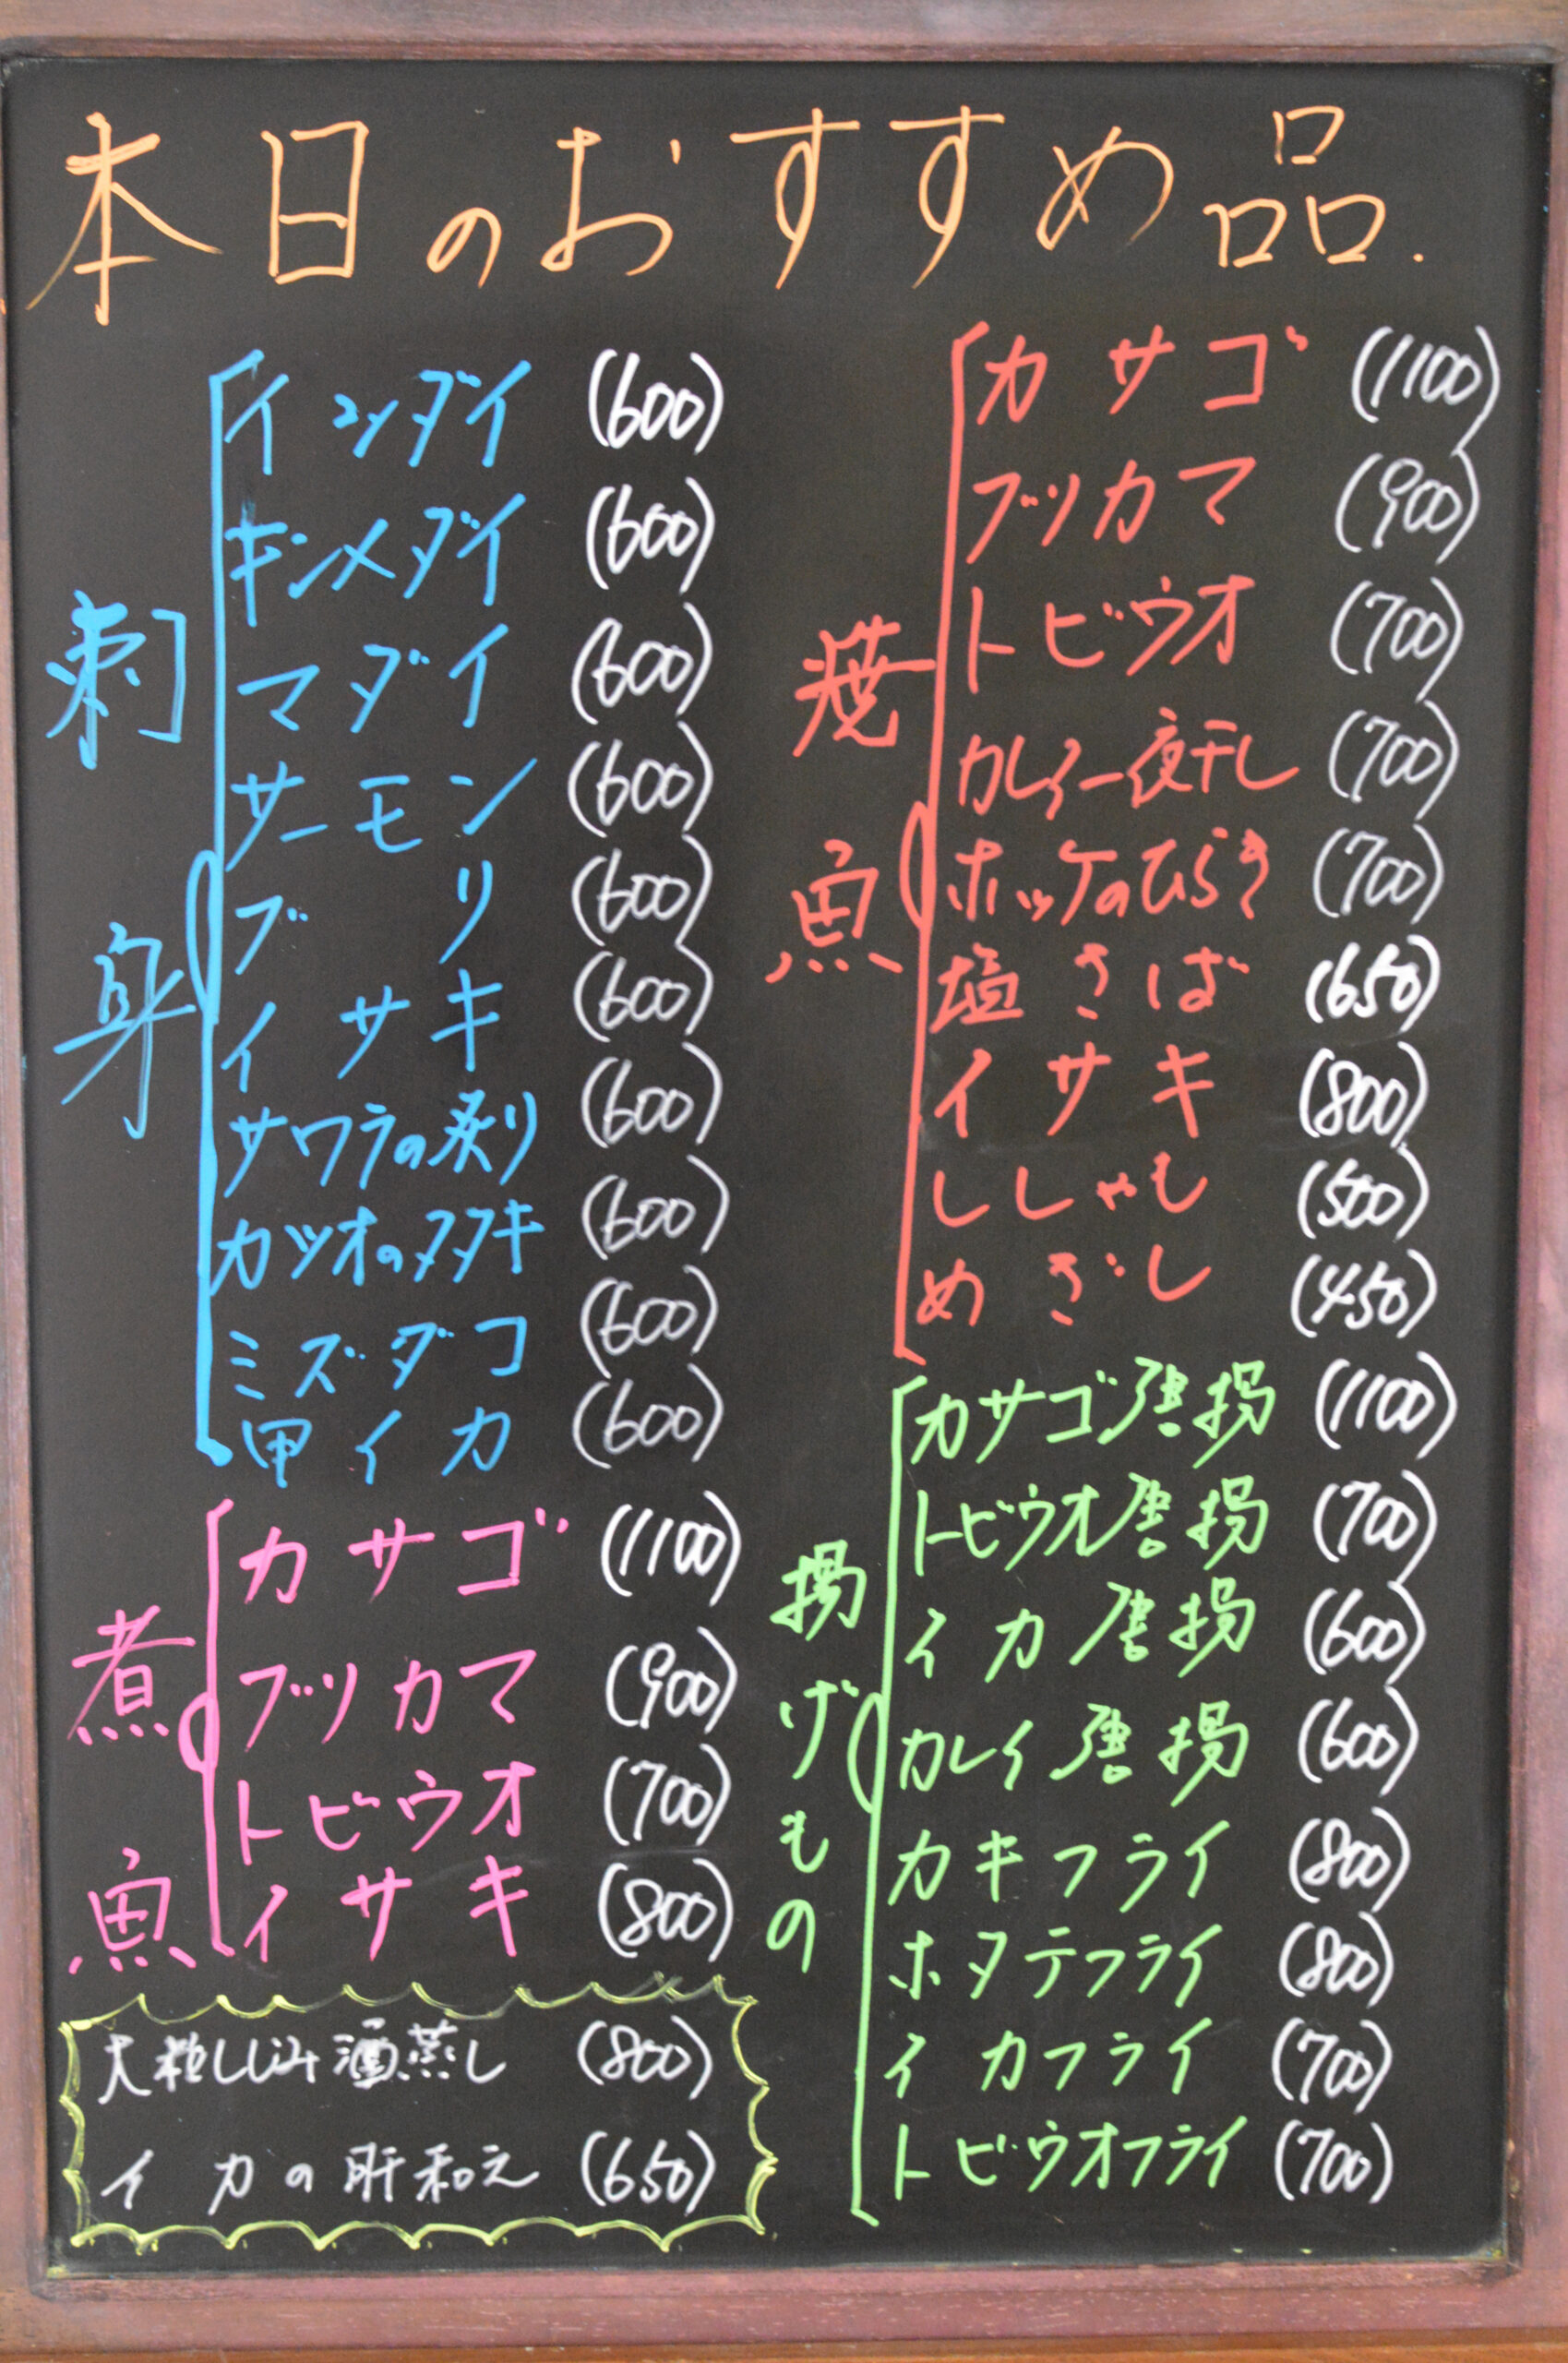 本日のおすすめ品.
刺身
イシダイ (600)
キンメダイ (600)
マダイ (600)
サーモン (600)
ブリ (600)
イサキ (600)
サワラの炙り (600)
カツオのタタキ (600)
ミズダコ (600)
甲イカ (600)
煮魚
カサゴ (1100)
ブリカマ (900)
トビウオ (700)
イサキ (800)
大粒しじみ酒蒸し (800)
イカの肝和え (650)
焼魚
カサゴ (1100)
ブリカマ (900)
トビウオ (700)
カレイ一夜干し (700)
ホッケのひらき (700)
塩さば (650)
イサキ (800)
ししゃも (500)
めざし (450)
揚げもの
カサゴ唐揚 (1100)
トビウオ唐揚 (700)
イカ唐揚 (600)
カレイ唐揚 (600)
カキフライ (800)
ホタテフライ (800)
イカフライ (700)
トビウオフライ (700)